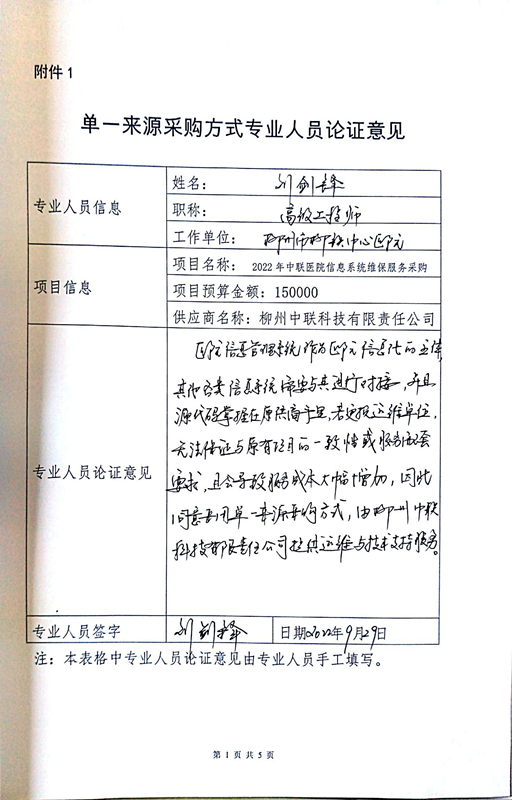 附件1
单一来源采购方式专业人员论证意见
专业人员信息
姓名：
职称：
高级工程师
工作单位：
柳州市柳铁中心医院
项目信息
项目名称：2022年中联医院信息系统维保服务采购
项目预算金额：150000
供应商名称：柳州中联科技有限责任公司
专业人员论证意见
医院信息管理系统作为医院信息化的主体
其他各类信息系统需要与其进行对接，并且
源代码掌握在原供商手里，若更换运维单位，
无法保证与原有项目的一致性或服务配套
要求，且会导致服务成本大幅增加，因此
同意采用单一来源采购方式，由柳州中联
科技有限责任公司提供运维与技术支持服务。
专业人员签字
日期2022年9月29日
注：本表格中专业人员论证意见由专业人员手工填写。
第 1 页 共 5 页